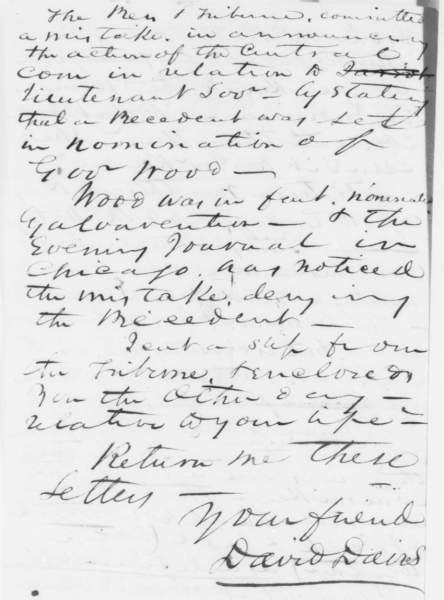 The Press & Tribune. committed
a mistake. in announcing
the action of the Central
Com in relation to
Lieutenant Govr — by stating
that a Precedent was set
in nomination of
Govr Wood —
Wood was in fact. nominated
by a Convention — & the
Evening Journal in
Chicago. has noticed
the mistake. denying
the Precedent —
I cut a slip from
the Tribune. & enclosed to
you the other day —
relative to your life —
Return me these
Letters —
Your friend
David Davis